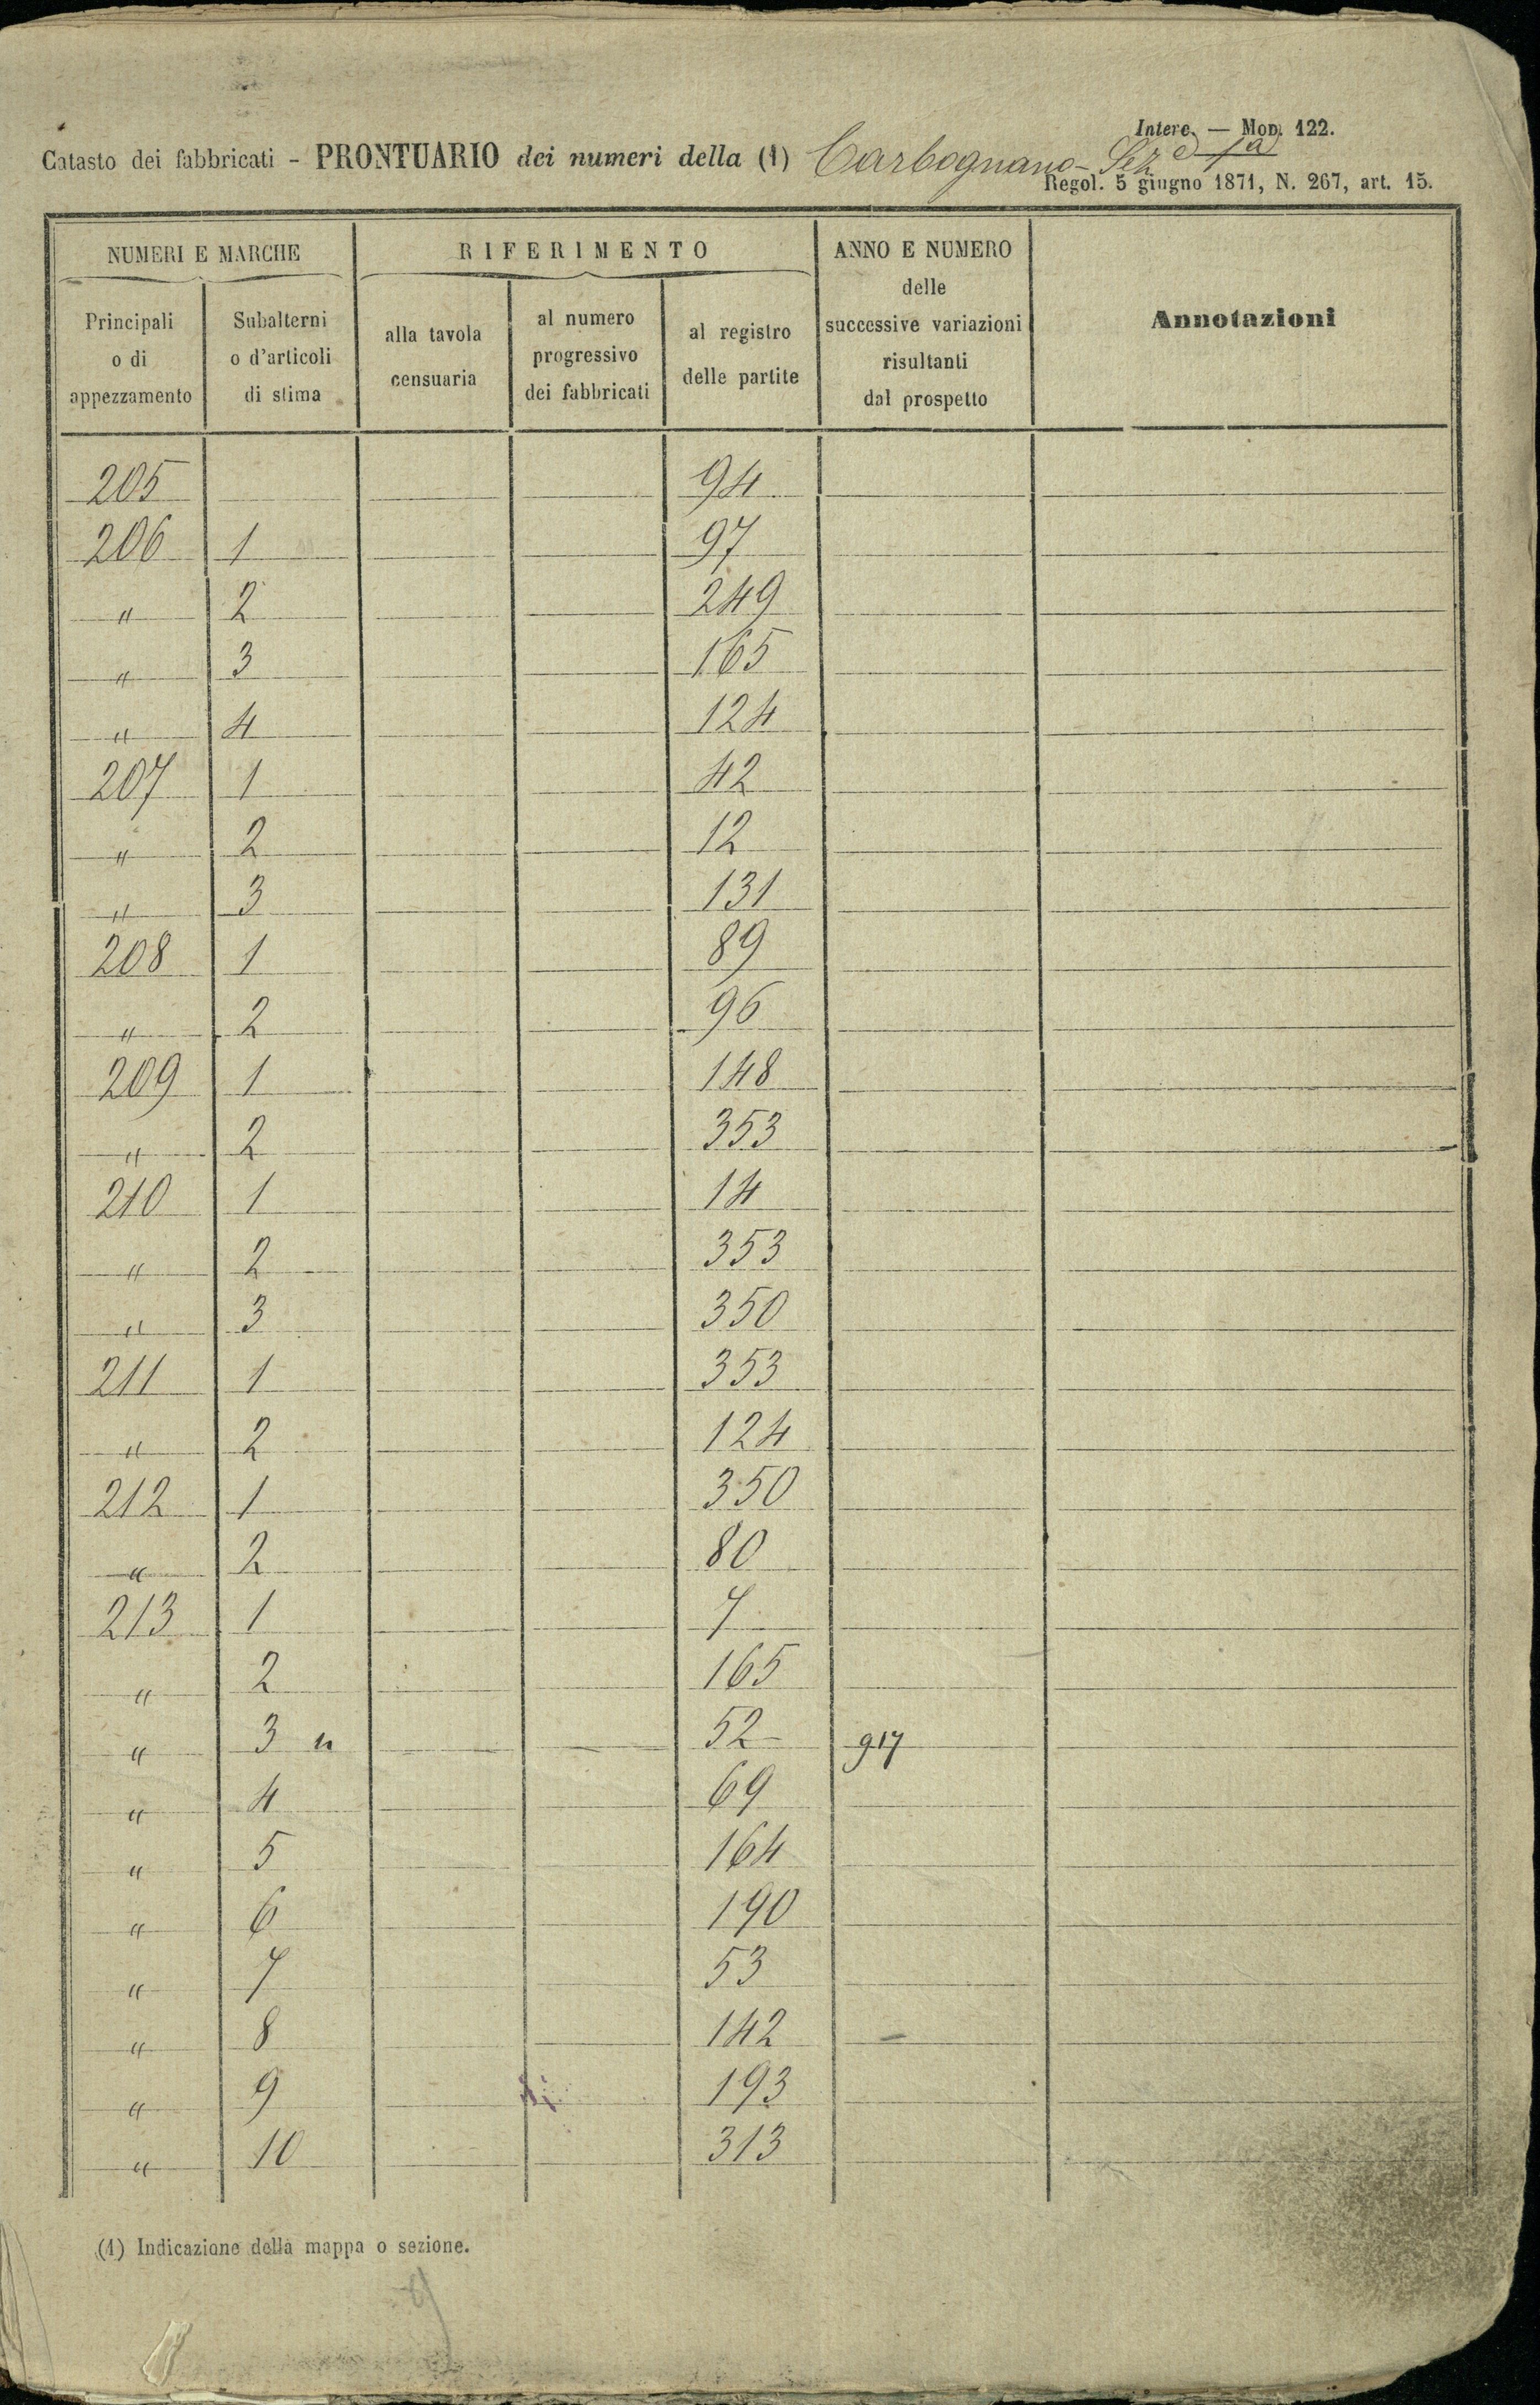 Interc. — Mod. 122.
Catasto dei fabbricati - PRONTUARIO dei numeri della (1) Carbognano - Sez.e 1a
Regol. 5 giugno 1871, N. 267, art. 15.
NUMERI E MARCHE
RIFERIMENTO
ANNO E NUMERO
delle
successive variazioni
risultanti
dal prospetto
Annotazioni
Principali
o di
appezzamento
Subalterni
o d'articoli
di stima
alla tavola
censuaria
al numero
progressivo
dei fabbricati
al registro
delle partite
205 94
206 1 97
" 2 249
" 3 165
" 4 124
207 1 42
" 2 12
" 3 131
208 1 89
" 2 96
209 1 148
" 2 353
210 1 14
" 2 353
" 3 350
211 1 353
" 2 124
212 1 350
" 2 80
213 1 7
" 2 165
" 3 52 917
" 4 69
" 5 164
" 6 190
" 7 53
" 8 142
" 9 193
" 10 313
(1) Indicazione della mappa o sezione.